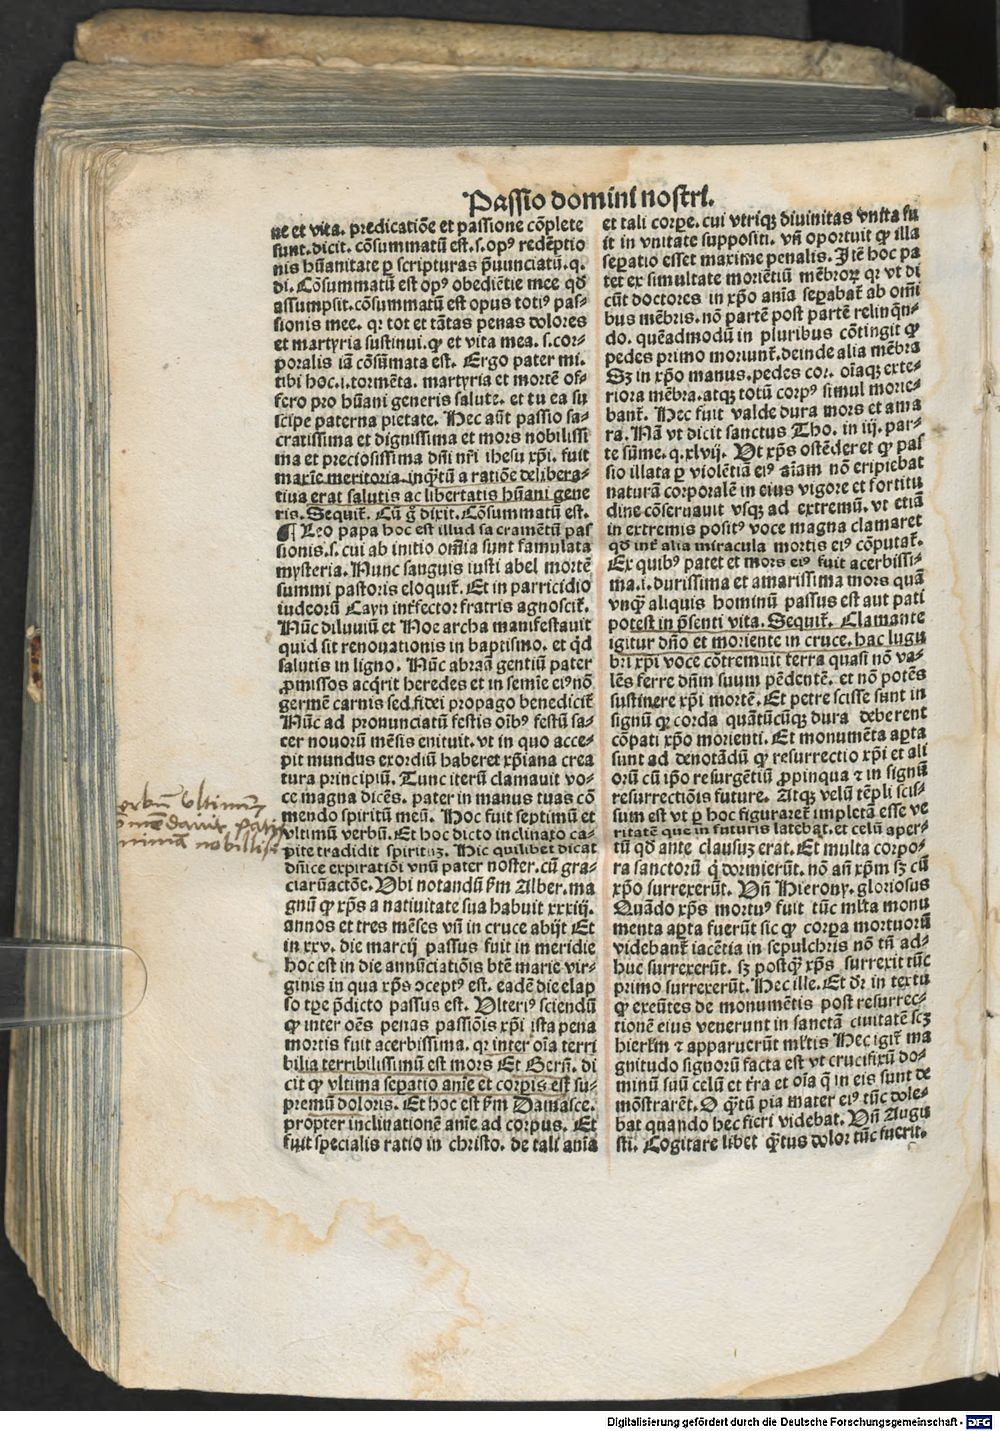 Passio domini nostri.
ne et vita. predicatiōe et passione cōplete
sunt. dicit. cōsummatū est. s. opꝰ redēptio
nis hūanitate ꝑ scripturas p̄nunciatū. q.
di. Cōsummatū est opꝰ obediētie mee qd̄
assumpsit. cōsummatū est opus totiꝰ pas⸗
sionis mee. qꝛ tot et tātas penas dolores
et martyria sustinui. ꝙ et vita mea. s. cor⸗
poralis iā cōsūmata est. Ergo pater mi.
tibi hoc. i. tormēta. martyria et mortē of⸗
fero pro hūani generis salute. et tu ea su
scipe paterna pietate. Hec aūt passio sa⸗
cratissima et dignissima et mors nobilissi
ma et preciosissima dn̄i nr̄i ihesu xp̄i. fuit
maxīe meritoria. inq̄tū a ratiōe delibera⸗
tiua erat salutis ac libertatis hūani gene
ris. Sequit̄. Cū g̊ dixit. Cōsummatū est.
¶ Leo papa hoc est illud sacramētū pas
sionis. s. cui ab initio om̄ia sunt famulata
mysteria. Nunc sanguis iusti abel mortē
summi pastoris eloquit̄. Et in parricidio
iudeorū Cayn inter̄fector fratris agnoscit̄.
Nūc diluuiū et Noe archa manifestauit
quid sit renouationis in baptismo. et qd̄
salutis in ligno. Nūc abraā gentiū pater
ꝓmissos acq̄rit heredes et in semīe eiꝰ nō
germē carnis sed fidei propago benedicit̄
Nūc ad pronunciatū festis oībꝰ festū sa⸗
cer nouorū mēsis enituit. vt in quo acce⸗
pit mundus exordiū haberet xp̄iana crea
tura principiū. Tunc iterū clamauit vo⸗
ce magna dicēs. pater in manus tuas cō
mendo spiritū meū. Hoc fuit septimū et
vltimū verbū. Et hoc dicto inclinato ca⸗
pite tradidit spiritū. Hic quilibet dicat
dn̄ice expiratiōi vnū pater noster. cū gra⸗
ciarū actōe. Vbi notandū ẜm Alber. ma
gnū ꝙ xp̄s a natiuitate sua habuit xxxiij.
annos et tres mēses vn̄ in cruce abijt Et
in xxv. die marcij passus fuit in meridie
hoc est in die annūciatiōis btē marie vir⸗
ginis in qua xp̄s ↄceptꝰ est. eadē die elap
so tꝑe p̄dicto passus est. Vlteriꝰ sciendū
ꝙ inter oēs penas passiōis xp̄i ista pena
mortis fuit acerbissima. qꝛ inter oīa terri
bilia terribilissimū est mors Et Bern̄. di
cit ꝙ vltima seꝑatio anīe et corpis est su⸗
premū doloris. Et hoc est ẜm Damasce.
propter inclinationē anīe ad corpus. Et
fuit specialis ratio in christo. de tali anīa
et tali corꝑe. cui vtriqꝫ diuinitas vnita fu
it in vnitate suppositi. vn̄ oportuit ꝙ illa
seꝑatio esset maxime penalis. Itē hoc pa
tet ex simultate moriētiū mēbroꝝ qꝛ vt di
cūt doctores in xp̄o anīa seꝑabat̄ ab om̄i
bus mēbris. nō partē post partē relinq̄n⸗
do. quēadmodū in pluribus cōtingit ꝙ
pedes primo moriunt̄. deinde alia mēbra
Sꝫ in xp̄o manus. pedes cor. oīaqꝫ exte⸗
riora mēbra. atqꝫ totū corpꝰ simul morie⸗
bant̄. Hec fuit valde dura mors et ama
ra. Nā vt dicit sanctus Tho. in iij. par⸗
te sūme. q. xlvij. Vt xp̄s ostēderet ꝙ pas
sio illata ꝑ violētiā eiꝰ aīam nō eripiebat
naturā corporalē in eius vigore et fortitu
dine cōseruauit vsqꝫ ad extremū. vt etiā
in extremis positꝰ voce magna clamaret
qd̄ int̄ alia miracula mortis eiꝰ cōputat̄.
Ex quibꝰ patet et mors eiꝰ fuit acerbissi⸗
ma. i. durissima et amarissima mors quā
vnqꝫ aliquis hominū passus est aut pati
potest in p̄senti vita. Sequit̄. Clamante
igitur dn̄o et moriente in cruce. hac lugu
bri xp̄i voce cōtremuit terra quasi nō va⸗
lēs ferre dn̄m suum pēdentē. et nō potēs
sustinere xp̄i mortē. Et petre scisse sunt in
signū ꝙ corda quātūcūqꝫ dura deberent
cōpati xp̄o morienti. Et monumēta aꝑta
sunt ad denotādū ꝙ resurrectio xp̄i et ali
orū cū ip̄o resurgētiū ꝓpinqua ⁊ in signū
resurrectiōis future. Atqꝫ velū tēpli scis⸗
sum est vt ꝑ hoc figuraret̄ impletā esse ve
ritatē que in futuris latebat. et celū aper⸗
tū qd̄ ante clausuꝫ erat. Et multa corpo⸗
ra sanctorū q̄ dormierūt. nō an̄ xp̄m sꝫ cū
xp̄o surrexerūt. Vn̄ Hierony. gloriosus
Quādo xp̄s mortuꝰ fuit tūc ml̄ta monu
menta aꝑta fuerūt sic ꝙ corꝑa mortuorū
videbant̄ iacētia in sepulchris nō tn̄ ad⸗
huc surrexerūt. sꝫ postqꝫ xp̄s surrexit tūc
primo surrexerūt. Hec ille. Et dr̄ in textu
ꝙ exeūtes de monumētis post resurrec⸗
tionē eius venerunt in sanctā ciuitatē scꝫ
hierl̄m ⁊ apparuerūt ml̄tis Hec igit̄ ma
gnitudo signorū facta est vt crucifixū do⸗
minū suū celū et t̄ra et oīa q̄ in eis sunt de
mōstrarēt. O q̄tū pia mater eiꝰ tūc dole⸗
bat quando hec fieri videbat. Vn̄ Augu
sti. Cogitare libet q̄tus dolor tūc fuerit.
erbū vltimū
mēdauit patri
nimā nobiliss
Digitalisierung gefördert durch die Deutsche Forschungsgemeinschaft - DFG